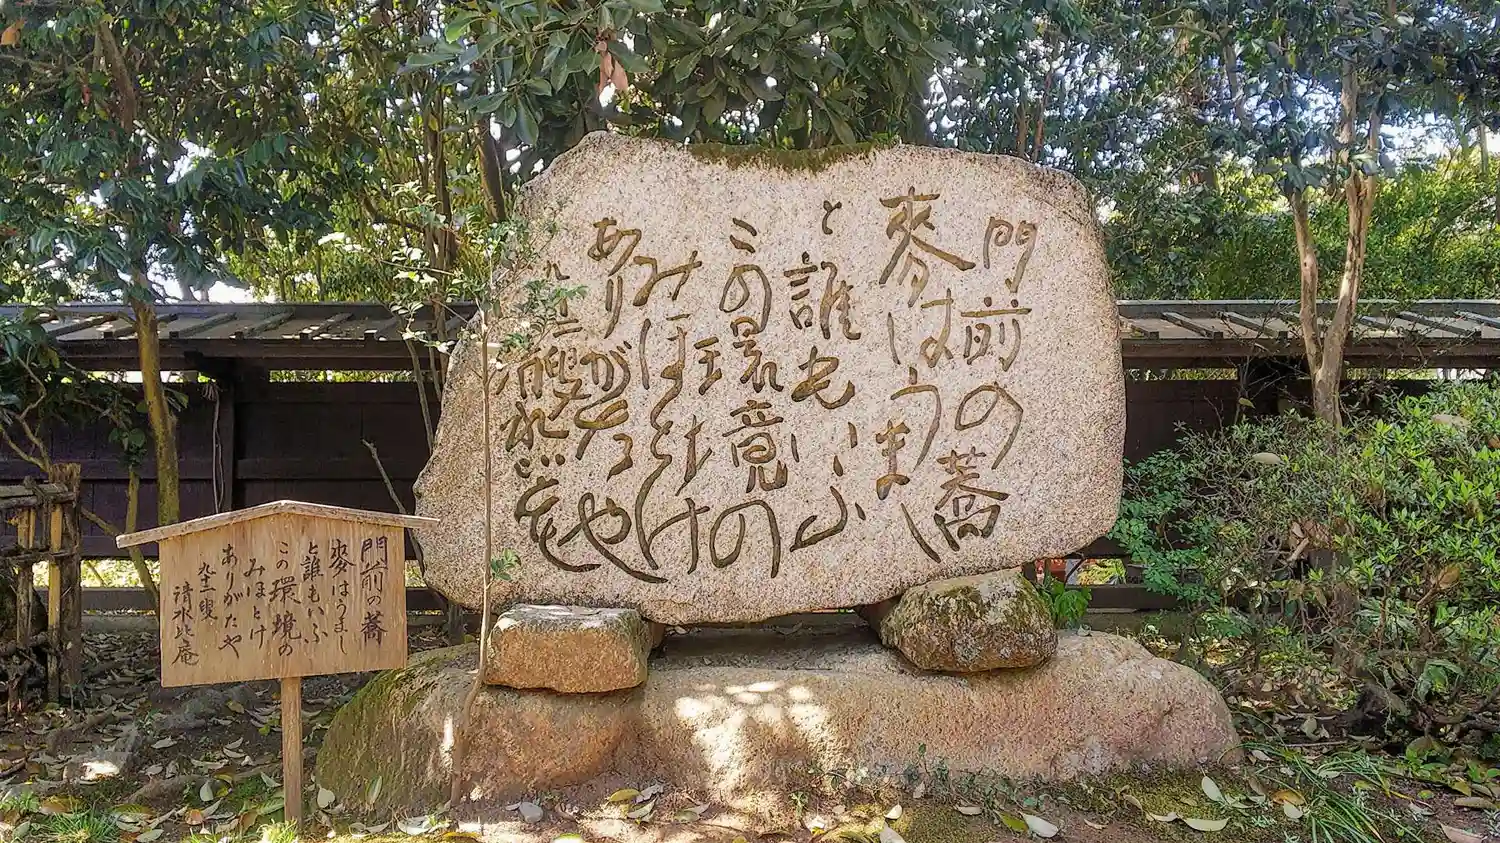 門前の蕎
麥はうまし
と誰もいふ
この環境の
みほとけ
ありがたや
九十二叟
清水比庵
門前の蕎
麥はうまし
と誰もいふ
この環境の
みほとけ
ありがたや
九十二叟
清水比庵